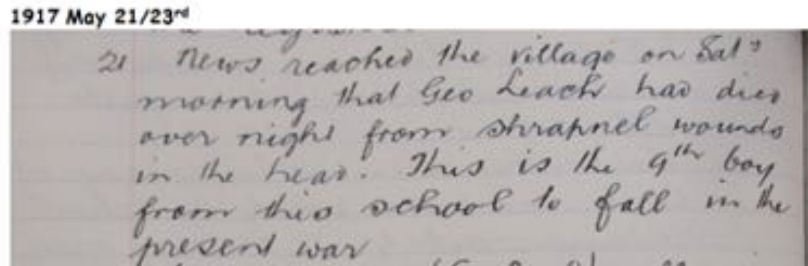 1917 May 21/23rd
21 News reached the village on Sat's
morning that Geo Leach had died
over night from shrapnel wounds
in the head. This is the 9th boy
from this school to fall in the
present war